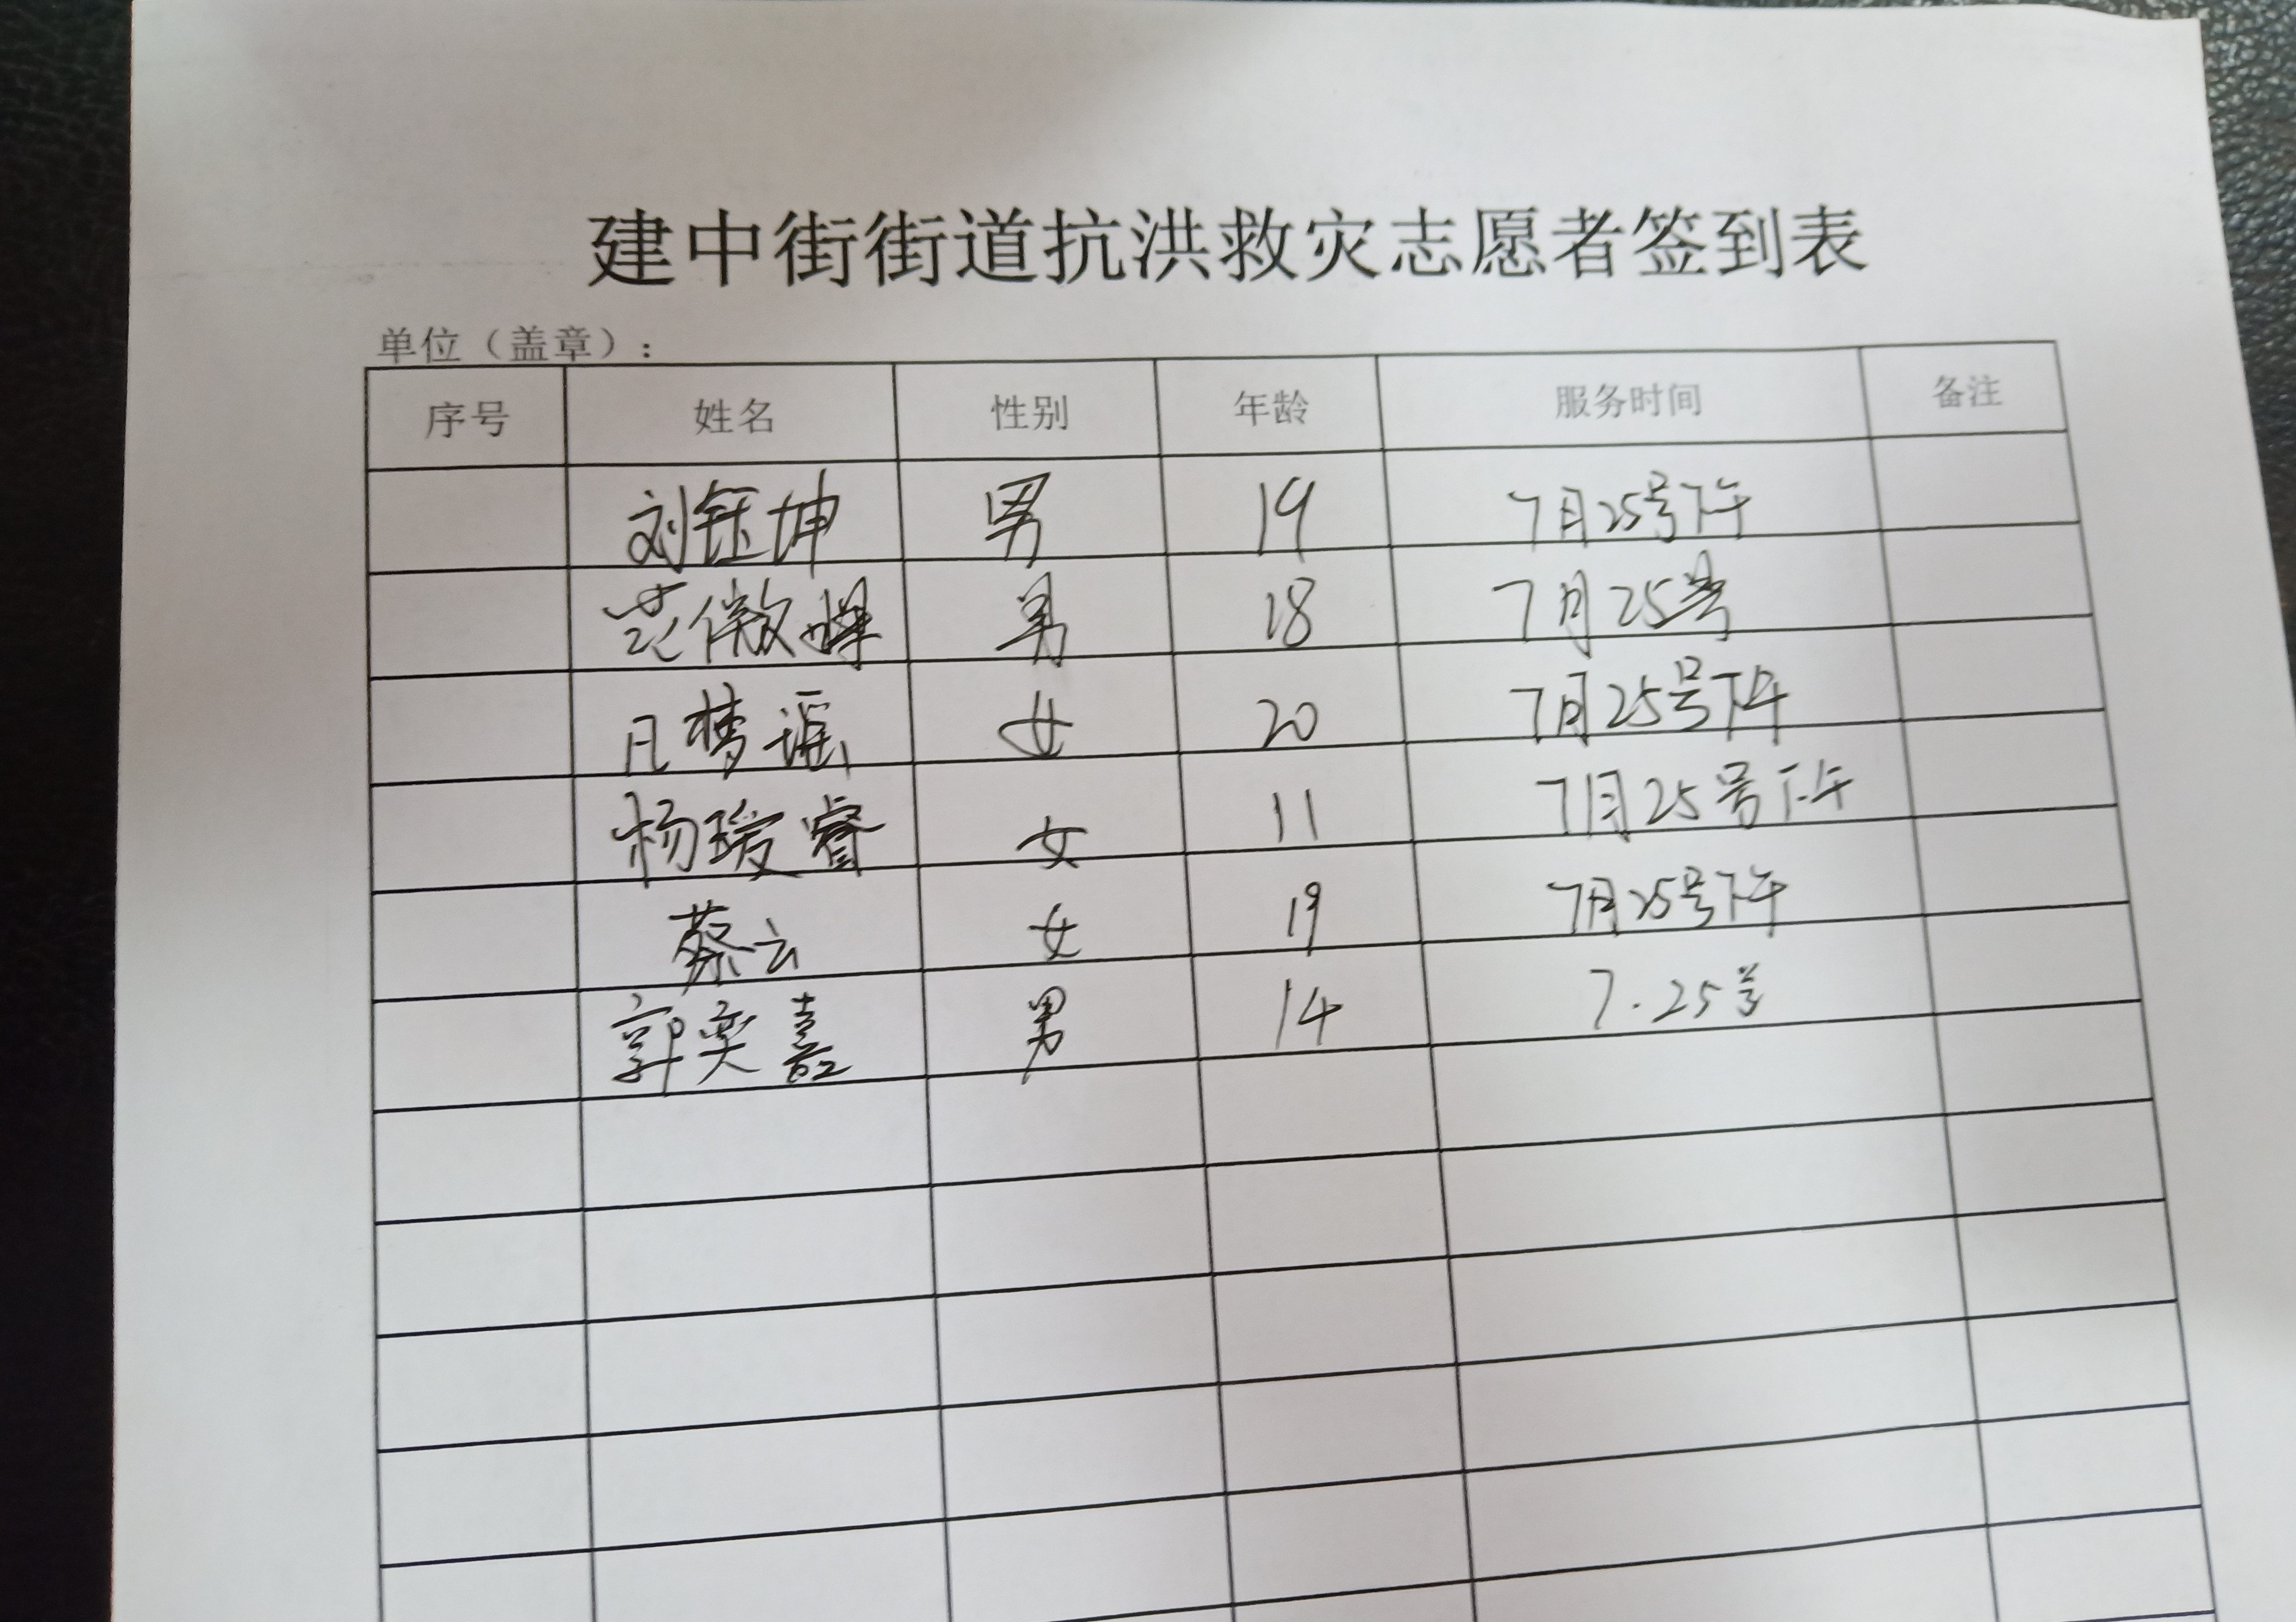 建中街街道抗洪救灾志愿者签到表
单位（盖章）：
序号 姓名 性别 年龄 服务时间 备注
刘钰坤 男 19 7月25号下午
男 18 7月25号
凡梦谣 女 20 7月25号下午
杨瑷睿 女 11 7月25号下午
蔡云 女 19 7月25号下午
郭奕嘉 男 14 7.25号